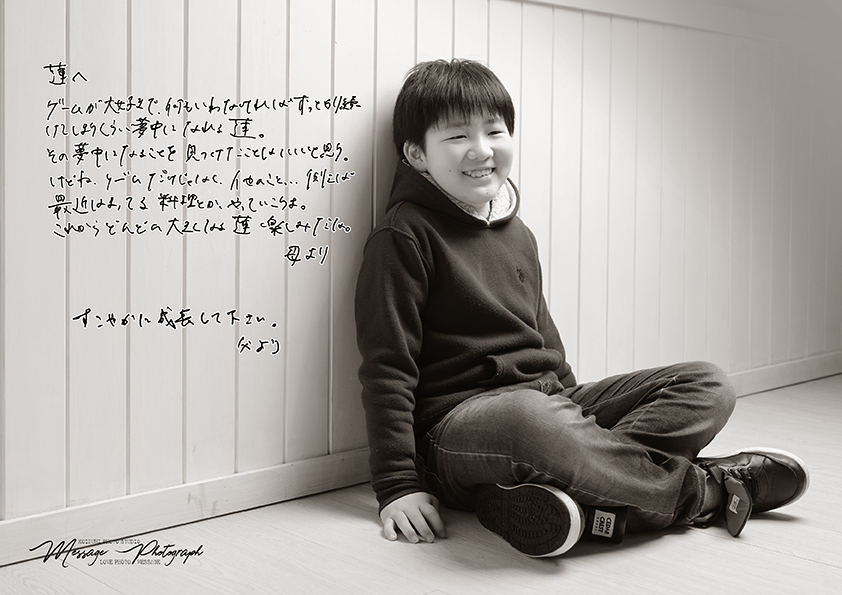 蓮へ
ゲームが大好きで、何もいわなければずっとやり続
けてしまうくらい夢中になれる蓮。
その夢中になることを見つけたことはいいと思う。
けどね、ゲームだけじゃなく、他のこと… 例えば
最近はまってる料理とか、やっていこうよ。
これからどんどん大きくなる蓮 楽しみだな。
母より
すこやかに成長して下さい。
父より
KOIZUMI PHOTO STUDIO
Message Photograph
LOVE PHOTO MESSAGE